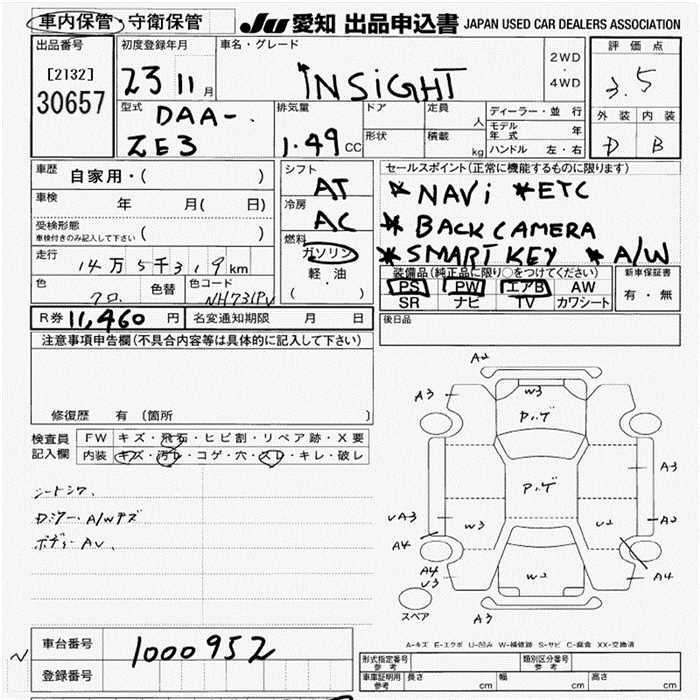 車内保管・守衛保管 JU 愛知 出品申込書 JAPAN USED CAR DEALERS ASSOCIATION
出品番号 初度登録年月 車名・グレード 2WD・4WD 評価点
[2132]
30657
23 11月 INSIGHT 3.5
型式 DAA-
ZE3
排気量 1.49 CC
ドア 定員 人
形状 積載 kg
ディーラー・並行
モデル年式 年
ハンドル 左・右
外装 内装
D B
車歴 自家用・( )
車検 年 月( 日)
受検形態
車検付きのみ記入して下さい ( )
走行 14万5千319km
色 クロ 色替 色コード NH731PV
シフト AT
冷房 AC
燃料
ガソリン
軽・油
( )
セールスポイント(正常に機能するものに限ります)
* NAVi * ETC
* BACK CAMERA
* SMART KEY * A/W
装備品(純正品に限り○をつけてください) 新車保証書
PS PW エアB AW 有・無
SR ナビ TV カワシート
R券 11,460 円 名変通知期限 月 日
後日品
注意事項申告欄(不具合内容等は具体的に記入して下さい)
修復歴 有(箇所 )
検査員記入欄 FW キズ・飛石・ヒビ割・リペア跡・X要
内装 キズ・汚レ・コゲ・穴・スレ・キレ・破レ
シートシワ、
ボディーAU、
A2
A3
W3
A3
A3
UA3
W3
U2
A2
A4
W2
A4
U3
A4
A3
スペア
A-キズ E-エクボ U-凹み W-補修跡 S-サビ C-腐食 XX-交換済
車台番号 1000952
登録番号
形式指定番号 参考 類別区分番号 参考
車庫証明用 参考 長さ cm 幅 cm 高さ cm